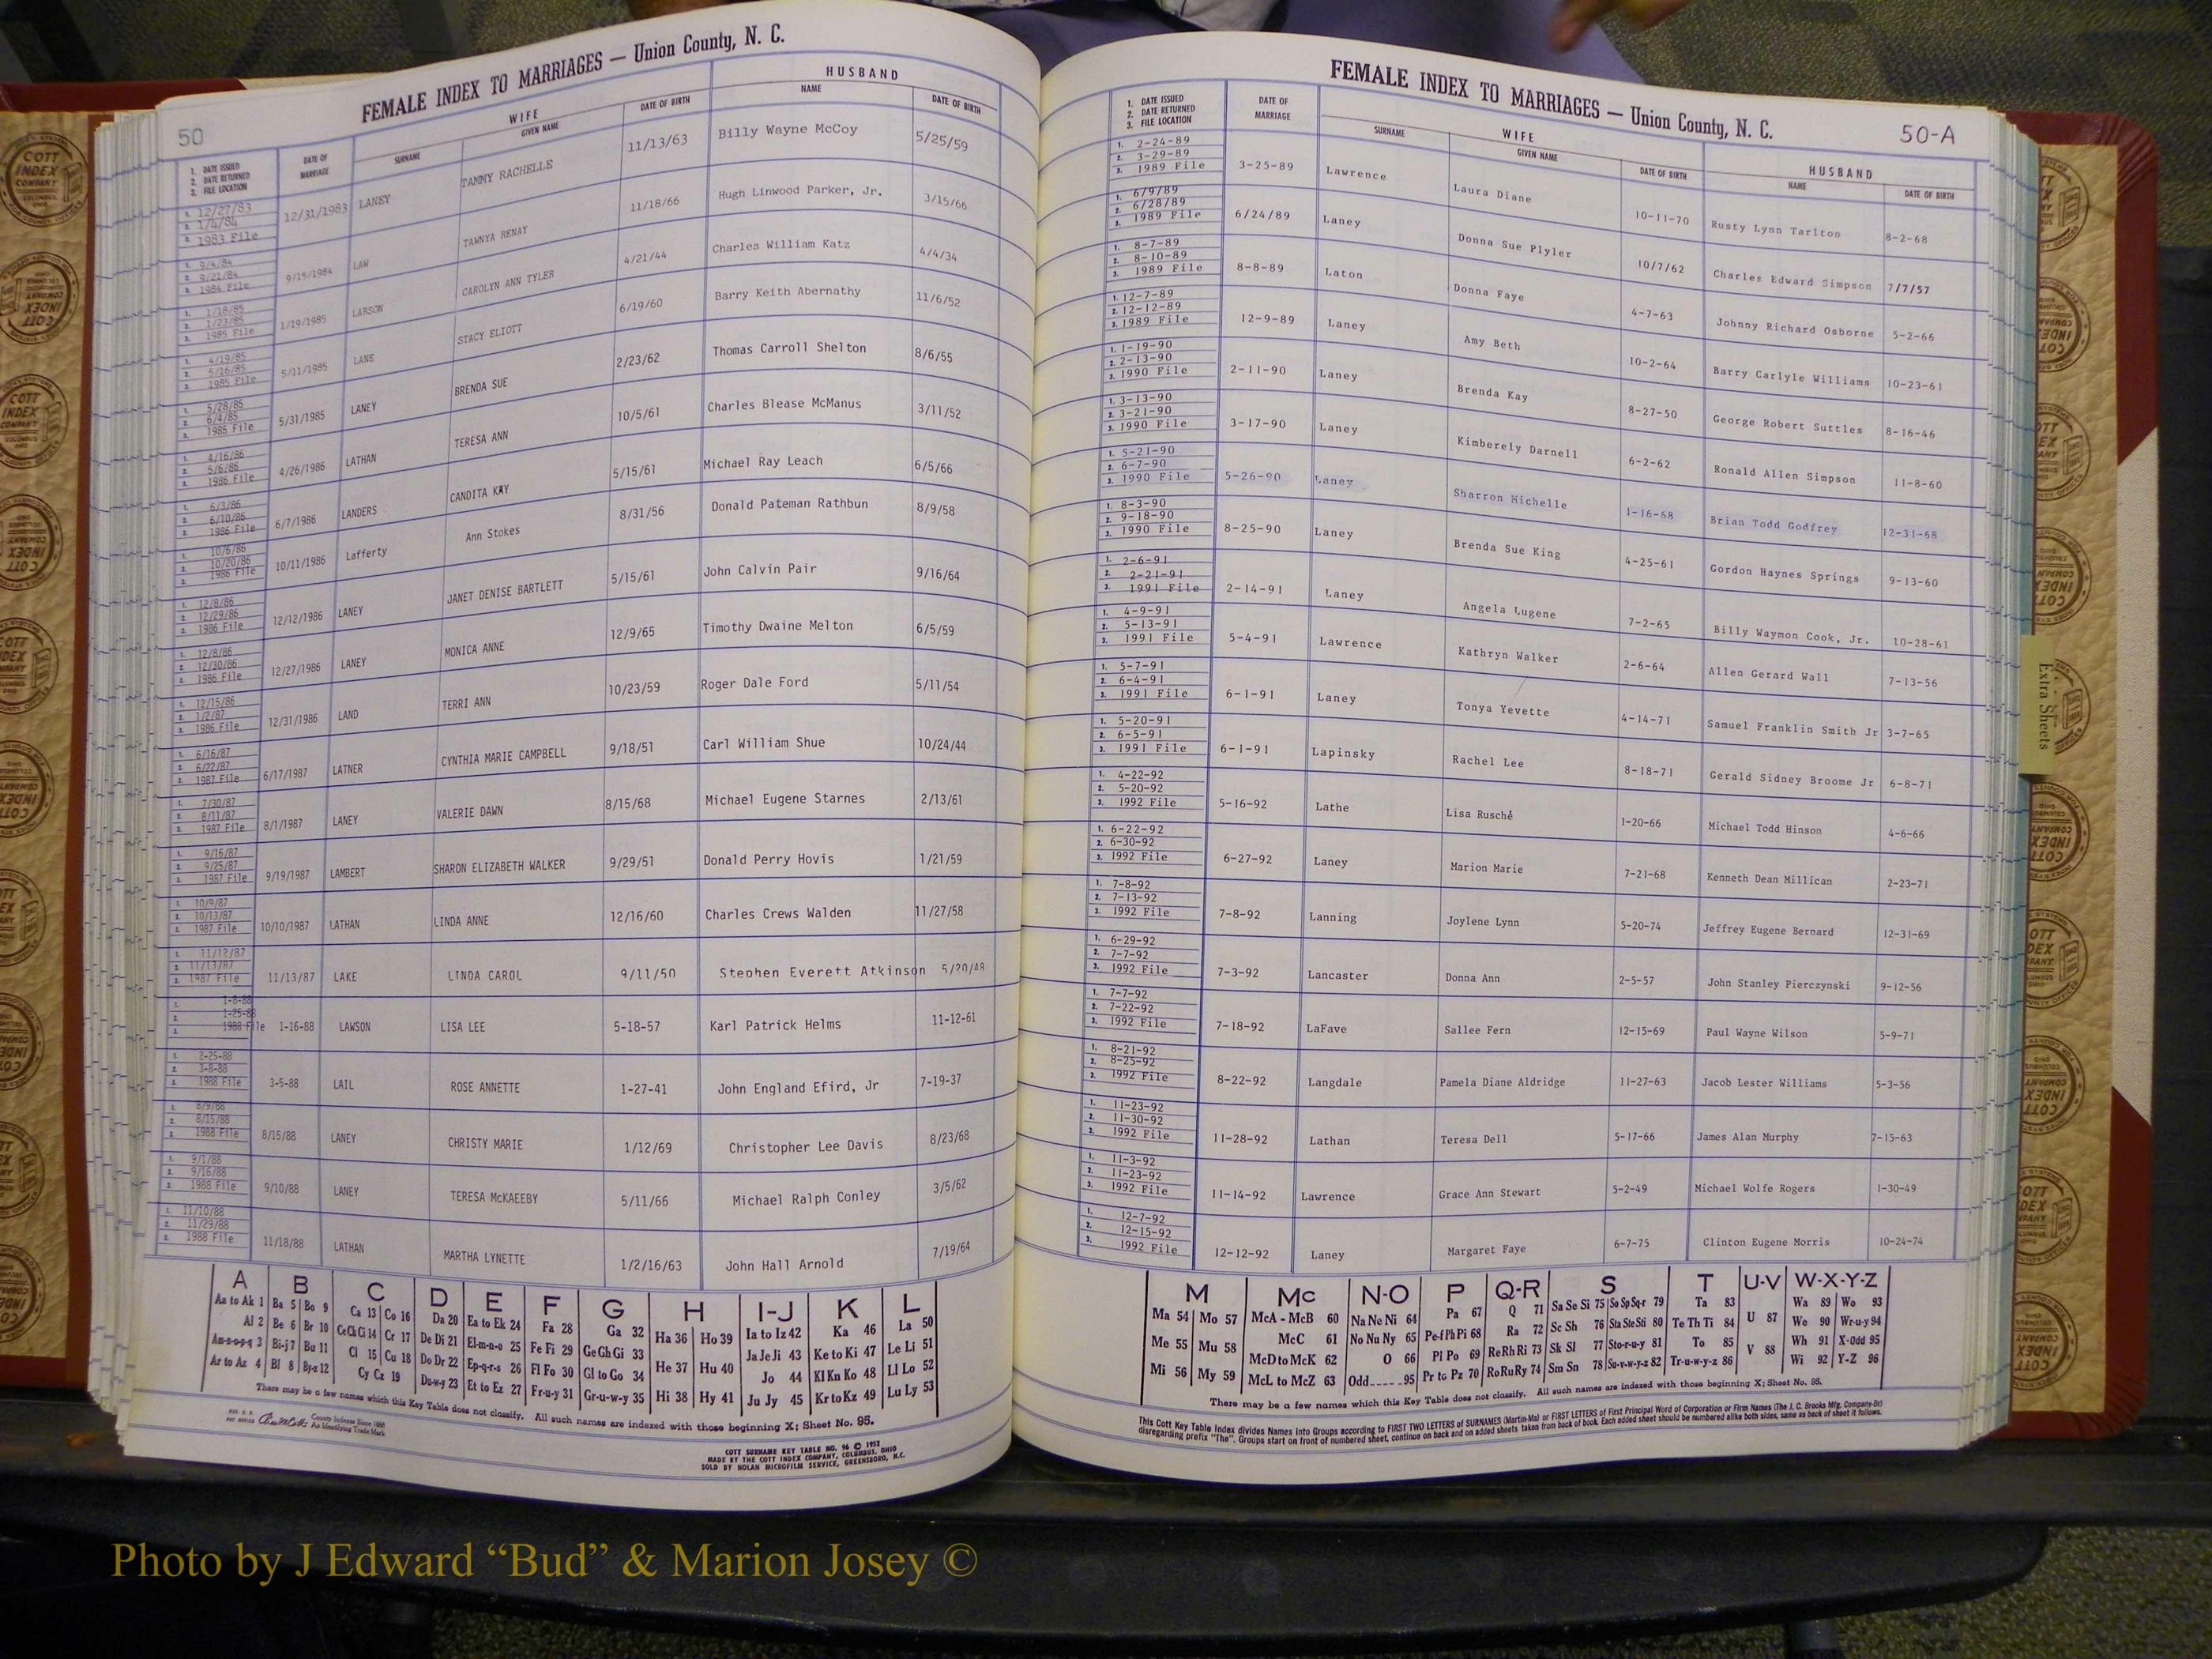 50
FEMALE INDEX TO MARRIAGES — Union County, N. C.
WIFE HUSBAND
1. DATE ISSUED
2. DATE RETURNED
3. FILE LOCATION
DATE OF MARRIAGE SURNAME GIVEN NAME DATE OF BIRTH NAME DATE OF BIRTH
1. 12/27/83
2. 1/4/84
3. 1983 File
12/31/1983 LANEY TAMMY RACHELLE 11/13/63 Billy Wayne McCoy 5/25/59
1. 9/4/84
2. 9/21/84
3. 1984 File
9/15/1984 LAW TAWNYA RENAY 11/18/66 Hugh Linwood Parker, Jr. 3/15/66
1. 1/18/85
2. 1/23/85
3. 1985 File
1/19/1985 LARSON CAROLYN ANN TYLER 4/21/44 Charles William Katz 4/4/34
1. 4/19/85
2. 5/16/85
3. 1985 File
5/11/1985 LANE STACY ELIOTT 6/19/60 Barry Keith Abernathy 11/6/52
1. 5/28/85
2. 6/4/85
3. 1985 File
5/31/1985 LANEY BRENDA SUE 2/23/62 Thomas Carroll Shelton 8/6/55
1. 4/16/86
2. 5/6/86
3. 1986 File
4/26/1986 LATHAN TERESA ANN 10/5/61 Charles Blease McManus 3/11/52
1. 6/3/86
2. 6/10/86
3. 1986 File
6/7/1986 LANDERS CANDITA KAY 5/15/61 Michael Ray Leach 6/5/66
1. 10/6/86
2. 10/20/86
3. 1986 File
10/11/1986 Lafferty Ann Stokes 8/31/56 Donald Pateman Rathbun 8/9/58
1. 12/8/86
2. 12/29/86
3. 1986 File
12/12/1986 LANEY JANET DENISE BARTLETT 5/15/61 John Calvin Pair 9/16/64
1. 12/8/86
2. 12/30/86
3. 1986 File
12/27/1986 LANEY MONICA ANNE 12/9/65 Timothy Dwaine Melton 6/5/59
1. 12/15/86
2. 1/2/87
3. 1986 File
12/31/1986 LAND TERRI ANN 10/23/59 Roger Dale Ford 5/11/54
1. 6/16/87
2. 6/22/87
3. 1987 File
6/17/1987 LATNER CYNTHIA MARIE CAMPBELL 9/18/51 Carl William Shue 10/24/44
1. 7/30/87
2. 8/11/87
3. 1987 File
8/1/1987 LANEY VALERIE DAWN 8/15/68 Michael Eugene Starnes 2/13/61
1. 9/16/87
2. 9/25/87
3. 1987 File
9/19/1987 LAMBERT SHARON ELIZABETH WALKER 9/29/51 Donald Perry Hovis 1/21/59
1. 10/9/87
2. 10/13/87
3. 1987 File
10/10/1987 LATHAN LINDA ANNE 12/16/60 Charles Crews Walden 11/27/58
1. 11/12/87
2. 11/13/87
3. 1987 File
11/13/87 LAKE LINDA CAROL 9/11/50 Stephen Everett Atkinson 5/20/48
1. 1-8-88
2. 1-25-88
3. 1988 File
1-16-88 LAWSON LISA LEE 5-18-57 Karl Patrick Helms 11-12-61
1. 2-25-88
2. 3-8-88
3. 1988 File
3-5-88 LAIL ROSE ANNETTE 1-27-41 John England Efird, Jr 7-19-37
1. 8/9/88
2. 8/15/88
3. 1988 File
8/15/88 LANEY CHRISTY MARIE 1/12/69 Christopher Lee Davis 8/23/68
1. 9/1/88
2. 9/16/88
3. 1988 File
9/10/88 LANEY TERESA McKAEEBY 5/11/66 Michael Ralph Conley 3/5/62
1. 11/10/88
2. 11/29/88
3. 1988 File
11/18/88 LATHAN MARTHA LYNETTE 1/2/16/63 John Hall Arnold 7/19/64
A B C D E F G H I-J K L
Aa to Ak 1 Ba 5 Bo 9 Ca 13 Co 16 Da 20 Ea to Ek 24 Fa 28 Ga 32 Ha 36 Ho 39 Ia to Iz 42 Ka 46 La 50
Al 2 Be 6 Br 10 Ce Ch Ci 14 Cr 17 De Di 21 El-m-n-o 25 Fe Fi 29 Ge Gh Gi 33 Ja Je Ji 43 Ke to Ki 47 Le Li 51
Am-n-o-p-q 3 Bi-j 7 Bu 11 Cl 15 Cu 18 Do Dr 22 Ep-q-r-s 26 Fl Fo 30 Gl to Go 34 He 37 Hu 40 Jo 44 Kl Kn Ko 48 Ll Lo 52
Ar to Az 4 Bl 8 By-z 12 Cy Cz 19 Du-w-y 23 Et to Ez 27 Fr-u-y 31 Gr-u-w-y 35 Hi 38 Hy 41 Ju Jy 45 Kr to Kz 49 Lu Ly 53
There may be a few names which this Key Table does not classify. All such names are indexed with those beginning X; Sheet No. 95.
County Indexes Since 1888
An Identifying Trade Mark
COTT SURNAME KEY TABLE NO. 96 © 1952
MADE BY THE COTT INDEX COMPANY, COLUMBUS, OHIO
SOLD BY NOLAN MICROFILM SERVICE, GREENSBORO, N.C.
FEMALE INDEX TO MARRIAGES — Union County, N. C.
50-A
1. DATE ISSUED
2. DATE RETURNED
3. FILE LOCATION
DATE OF MARRIAGE WIFE HUSBAND
SURNAME GIVEN NAME DATE OF BIRTH NAME DATE OF BIRTH
1. 2-24-89
2. 3-29-89
3. 1989 File
3-25-89 Lawrence Laura Diane 10-11-70 Rusty Lynn Tarlton 8-2-68
1. 6/9/89
2. 6/28/89
3. 1989 File
6/24/89 Laney Donna Sue Plyler 10/7/62 Charles Edward Simpson 7/7/57
1. 8-7-89
2. 8-10-89
3. 1989 File
8-8-89 Laton Donna Faye 4-7-63 Johnny Richard Osborne 5-2-66
1. 12-7-89
2. 12-12-89
3. 1989 File
12-9-89 Laney Amy Beth 10-2-64 Barry Carlyle Williams 10-23-61
1. 1-19-90
2. 2-13-90
3. 1990 File
2-11-90 Laney Brenda Kay 8-27-50 George Robert Suttles 8-16-46
1. 3-13-90
2. 3-21-90
3. 1990 File
3-17-90 Laney Kimberely Darnell 6-2-62 Ronald Allen Simpson 11-8-60
1. 5-21-90
2. 6-7-90
3. 1990 File
5-26-90 Laney Sharron Michelle 1-16-68 Brian Todd Godfrey 12-31-68
1. 8-3-90
2. 9-18-90
3. 1990 File
8-25-90 Laney Brenda Sue King 4-25-61 Gordon Haynes Springs 9-13-60
1. 2-6-91
2. 2-21-91
3. 1991 File
2-14-91 Laney Angela Lugene 7-2-65 Billy Waymon Cook, Jr. 10-28-61
1. 4-9-91
2. 5-13-91
3. 1991 File
5-4-91 Lawrence Kathryn Walker 2-6-64 Allen Gerard Wall 7-13-56
1. 5-7-91
2. 6-4-91
3. 1991 File
6-1-91 Laney Tonya Yevette 4-14-71 Samuel Franklin Smith Jr 3-7-65
1. 5-20-91
2. 6-5-91
3. 1991 File
6-1-91 Lapinsky Rachel Lee 8-18-71 Gerald Sidney Broome Jr 6-8-71
1. 4-22-92
2. 5-20-92
3. 1992 File
5-16-92 Lathe Lisa Rusché 1-20-66 Michael Todd Hinson 4-6-66
1. 6-22-92
2. 6-30-92
3. 1992 File
6-27-92 Laney Marion Marie 7-21-68 Kenneth Dean Millican 2-23-71
1. 7-8-92
2. 7-13-92
3. 1992 File
7-8-92 Lanning Joylene Lynn 5-20-74 Jeffrey Eugene Bernard 12-31-69
1. 6-29-92
2. 7-7-92
3. 1992 File
7-3-92 Lancaster Donna Ann 2-5-57 John Stanley Pierczynski 9-12-56
1. 7-7-92
2. 7-22-92
3. 1992 File
7-18-92 LaFave Sallee Fern 12-15-69 Paul Wayne Wilson 5-9-71
1. 8-21-92
2. 8-25-92
3. 1992 File
8-22-92 Langdale Pamela Diane Aldridge 11-27-63 Jacob Lester Williams 5-3-56
1. 11-23-92
2. 11-30-92
3. 1992 File
11-28-92 Lathan Teresa Dell 5-17-66 James Alan Murphy 7-15-63
1. 11-3-92
2. 11-23-92
3. 1992 File
11-14-92 Lawrence Grace Ann Stewart 5-2-49 Michael Wolfe Rogers 1-30-49
1. 12-7-92
2. 12-15-92
3. 1992 File
12-12-92 Laney Margaret Faye 6-7-75 Clinton Eugene Morris 10-24-74
M Mc N-O P Q-R S T U-V W-X-Y-Z
Ma 54 Mo 57 McA - McB 60 Na Ne Ni 64 Pa 67 Q 71 Sa Se Si 75 So Sp Sq-r 79 Ta 83 U 87 Wa 89 Wo 93
Me 55 Mu 58 McC 61 No Nu Ny 65 Pe-f Ph Pi 68 Ra 72 Sc Sh 76 Sta Ste Sti 80 Te Th Ti 84 We 90 Wr-u-y 94
McD to McK 62 O 66 Pl Po 69 Re Rh Ri 73 Sk Sl 77 Sto-r-u-y 81 To 85 V 88 Wh 91 X-Odd 95
Mi 56 My 59 McL to McZ 63 Odd 95 Pr to Pz 70 Ro Ru Ry 74 Sm Sn 78 Su-v-w-y-z 82 Tr-u-w-y-z 86 Wi 92 Y-Z 96
There may be a few names which this Key Table does not classify. All such names are indexed with those beginning X; Sheet No. 95.
This Cott Key Table Index divides Names into Groups according to FIRST TWO LETTERS of SURNAMES (Martin-Ma) or FIRST LETTERS of First Principal Word of Corporation or Firm Names (The J. C. Brooks Mfg. Company-Br)
disregarding prefix "The". Groups start on front of numbered sheet, continue on back and on added sheets taken from back of book. Each added sheet should be numbered alike both sides, same as back of sheet it follows.
Extra Sheets
COTT
INDEX
COMPANY
Photo by J Edward “Bud” & Marion Josey ©